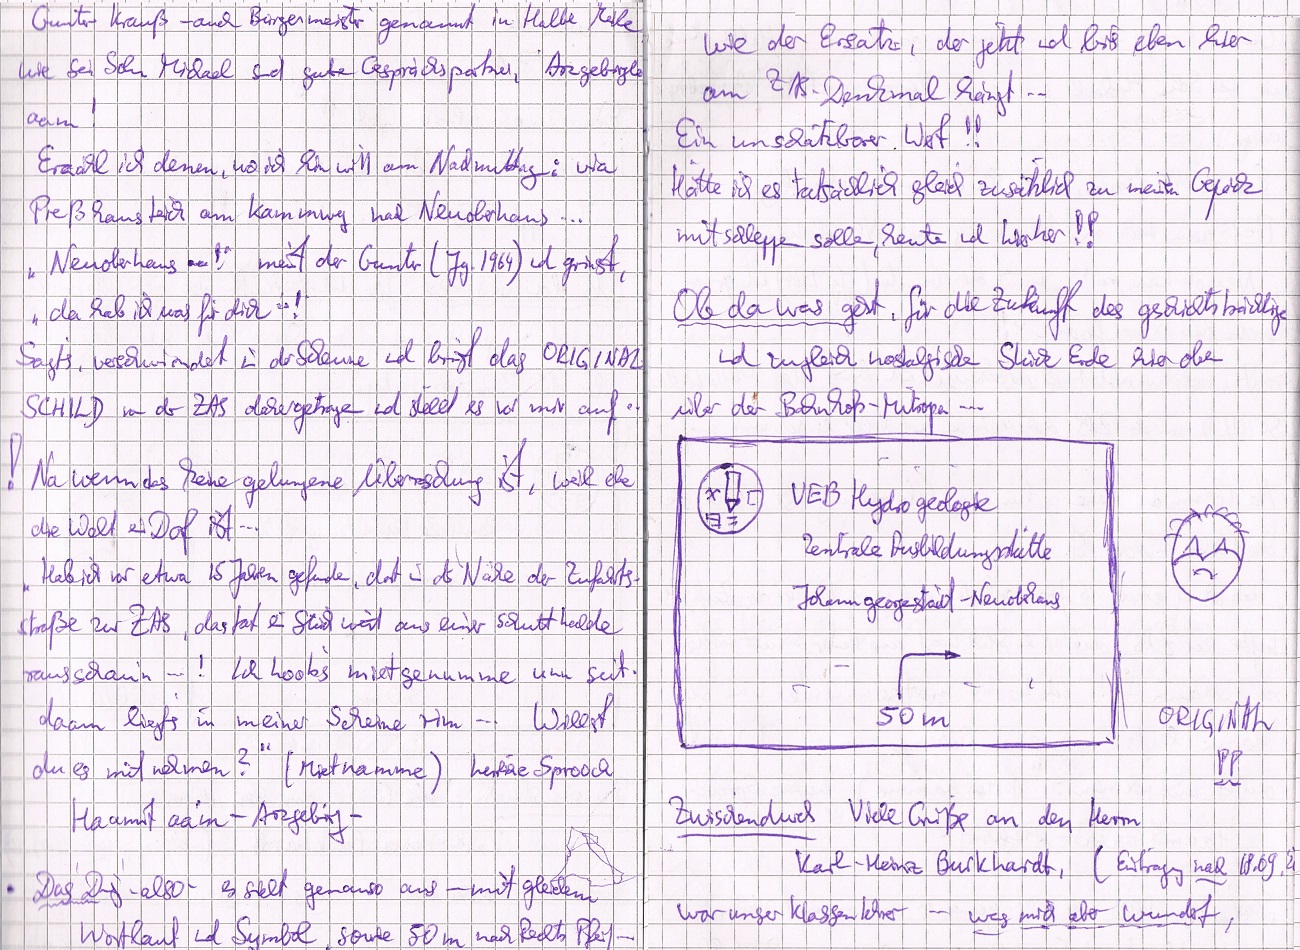 Gunter Krauß – auch Bürgermeister genannt in Halbe Meile
wie sein Sohn Michael sind gute Gesprächspartner, Arzgebirgler
aam!
Erzähl ich denen, wo ich hin will am Nachmittag: via
Preßhausteich am Kammweg nach Neuoberhaus ...
„Neuoberhaus ...!" meint der Gunter (Jg. 1964) und grinst,
„da hab ich was für dich ...!
Sagts, verschwindet in der Scheune und bringt das ORIGINAL
SCHILD von der ZAS dahergetragen und stellt es vor mir auf ...
! Na wenn das keine gelungene Überraschung ist, weil eben
die Welt ein Dorf ist ...
„Hab ich vor etwa 15 Jahren gefunden, dort in der Nähe der Zufahrts-
straße zur ZAS, das tat ein Stück weit aus einer Schutthalde
rausschaun – ! Ich hoobs mietgenumme unn seit-
daam liegts in meiner Scheine rim ... Willst
du es mitnehmen?" (Mietnamme) Sprooch
Haamit aa'm – Arzgebirg –
• Das Ding – also – es sieht genauso aus – mit gleichem
Wortlaut und Symbol, sowie 50 m nach Rechts Pfeil –
wie der Ersatz, der jetzt und bis eben hier
am ZAS-Denkmal hängt ...
Ein unschätzbarer Wert!!
Hätte ich es tatsächlich gleich zusätzlich zu meinem Gepäck
mitschleppen sollen, heute und hierher!!
Ob da was geht, für die Zukunft des geschichtsträchtigen
und zugleich nostalgischen Stück Erde hier oben
über der Bahnhofs-Mitropa ...
VEB Hydrogeologie
Zentrale Ausbildungsstätte
Johanngeorgenstadt-Neuoberhaus
50 m
ORIGINAL
!!
Zwischendurch Viele Grüße an den Herrn
Karl-Heinz Burkhardt, (Eintragung nach 18.09.
war unser Klassenlehrer – was mich aber wundert,